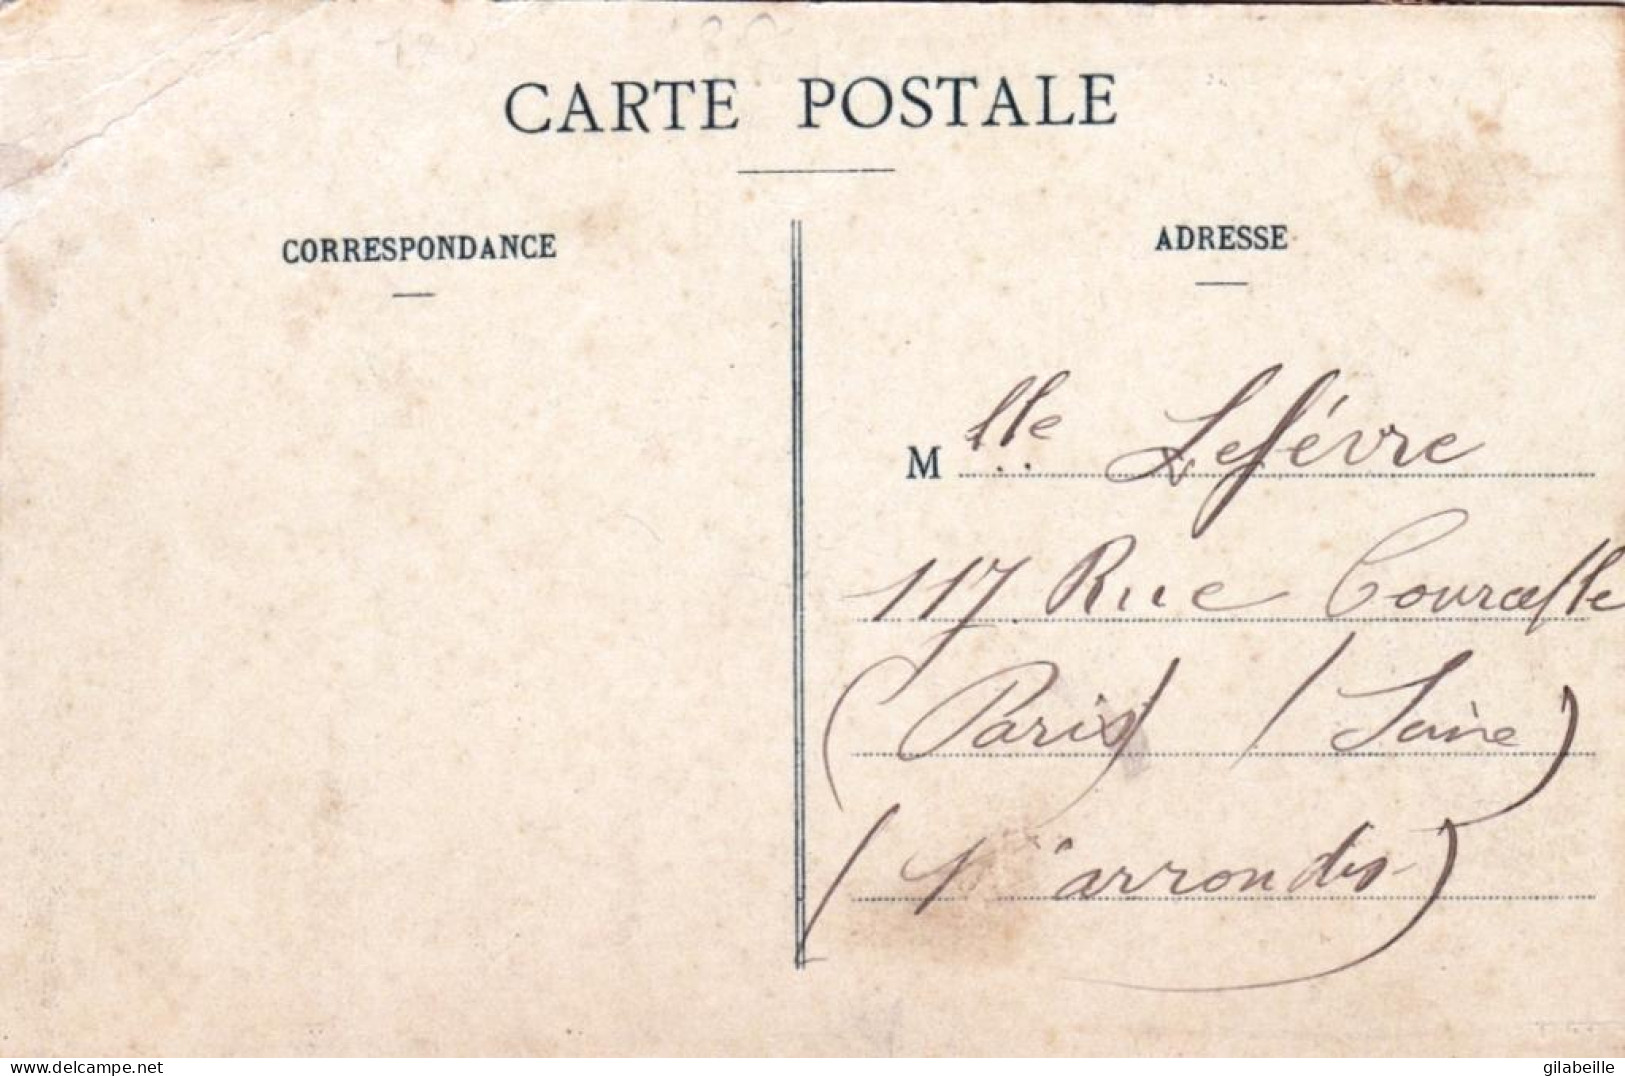 CARTE POSTALE
CORRESPONDANCE
ADRESSE
Mlle Lefévre
117 Rue Courcelle
(Paris) (Seine)
( arrondis)
www.delcampe.net
gilabeille